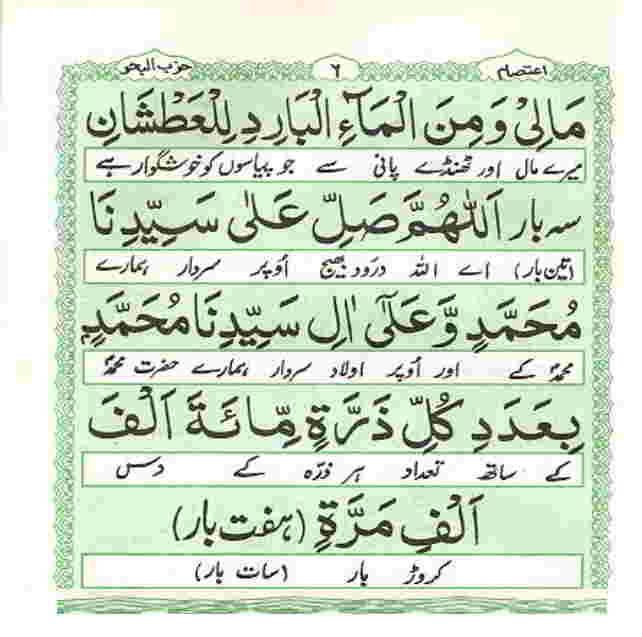 اعتصام ٦ حزب البحر
مَالِیْ وَ مِنَ الْمَآءِ الْبَارِدِ لِلْعَطْشَانِ
میرے مال اور ٹھنڈے پانی سے جو پیاسوں کو خوشگوار ہے
سہ بار اَللّٰهُمَّ صَلِّ عَلٰی سَیِّدِنَا
(تین بار) اے اللہ درود بھیج اُوپر سردار ہمارے
مُحَمَّدٍ وَّعَلٰٓی اٰلِ سَیِّدِنَا مُحَمَّدٍ
محمدؐ کے اور اُوپر اولاد سردار ہمارے حضرت محمدؐ
بِعَدَدِ كُلِّ ذَرَّةٍ مِّائَةَ اَلْفَ
کے ساتھ تعداد ہر ذرّہ کے دس
اَلْفِ مَرَّةٍ (ہفت بار)
کروڑ بار (سات بار)